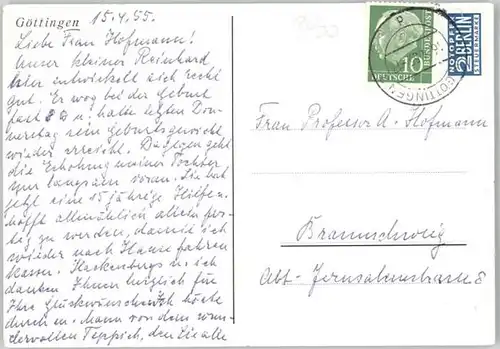 Göttingen
15.4.55.
Liebe Frau Hofmann!
Unser kleiner Reinhard
hier entwickelt sich recht
gut. Er wog bei der Geburt
fast 8 u. hatte letzten Don-
nerstag sein Geburtsgewicht
wieder erreicht. Dagegen geht
die Erholung meiner Tochter
nur langsam voran. Sie hat
jetzt eine 15 jährige Hilfe u.
hofft allmählich allein fer-
tig zu werden, damit ich
wieder nach Hause fahren
kann. u. ich
danken Ihnen herzlich für
Ihre Glückwünsche. Ich hörte
durch m. Mann von dem wun-
dervollen Teppich, den Sie alle
10
DEUTSCHE
BUNDESPOST
NOTOPFER
2 BERLIN
STEUERMARKE
GÖTTINGEN
Frau Professor A. Hofmann
Braunschweig
Abt-Jerusalemstraße 8